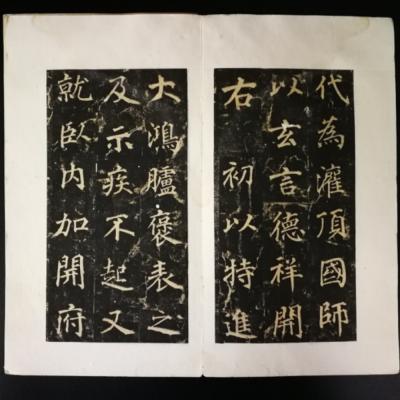 代為灌頂國師
以玄言德祥開
右初以特進
大鴻臚褒表之
及示疾不起又
就臥內加開府